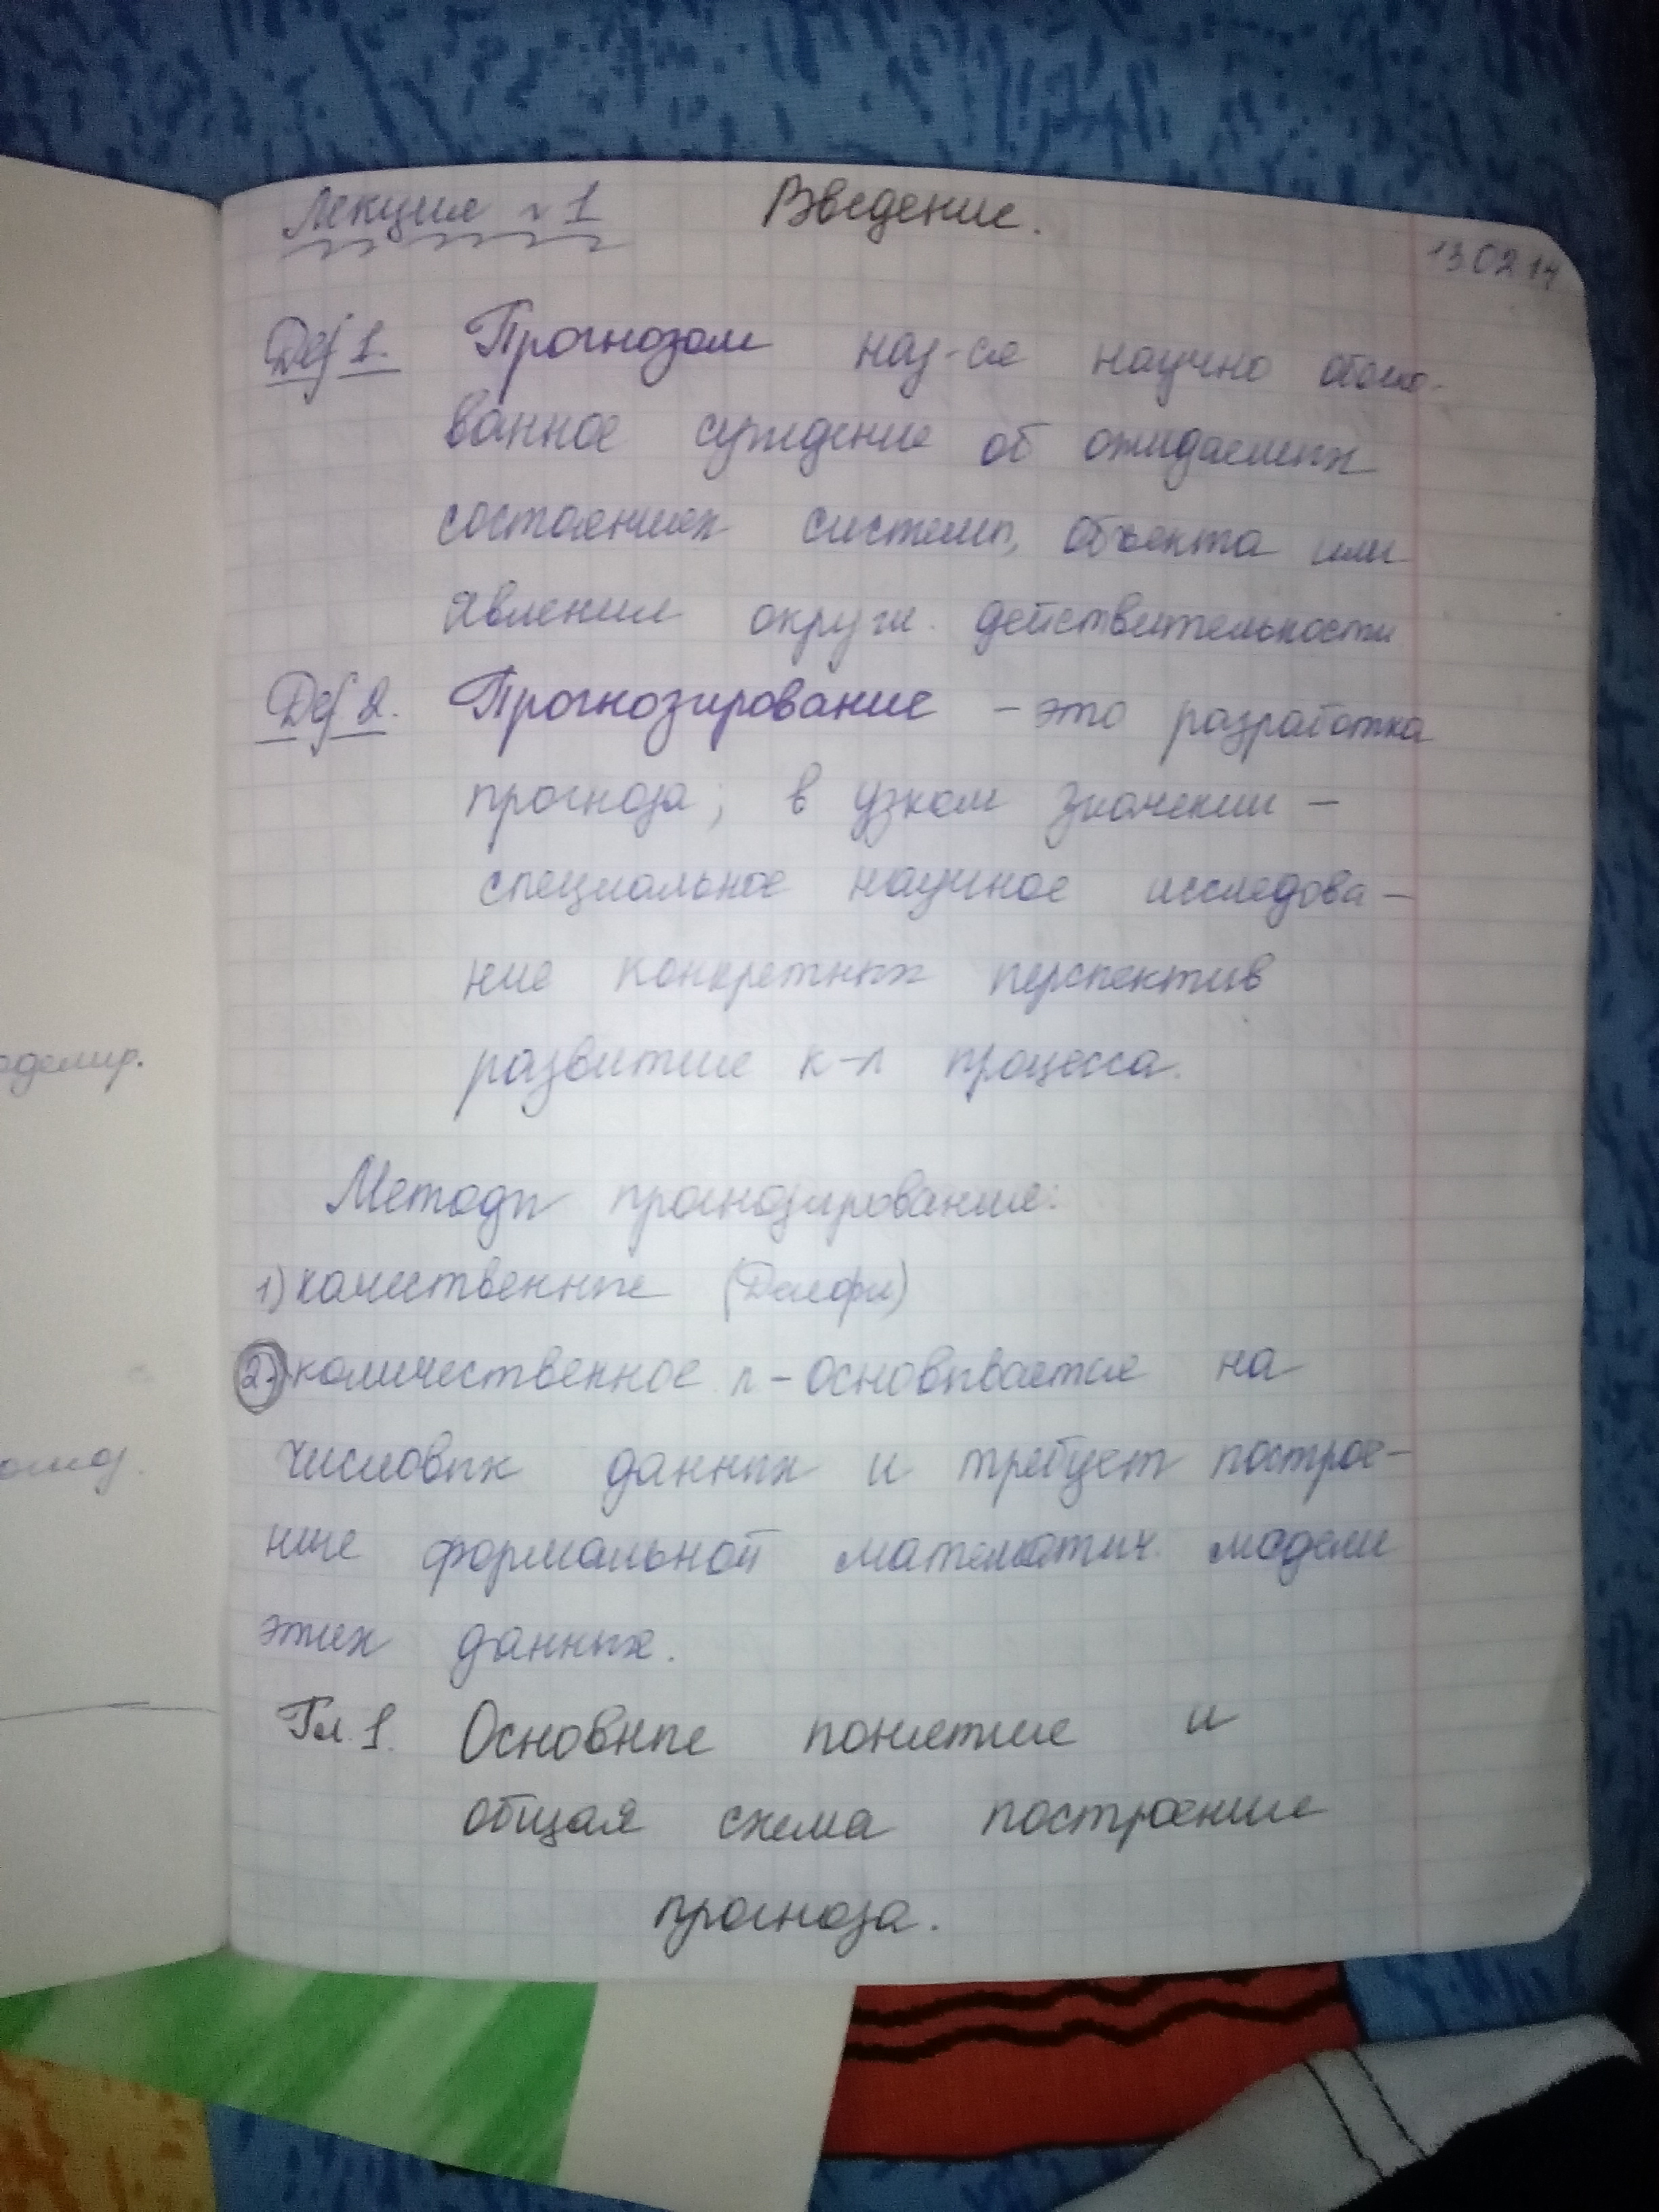 Лекция №1 Введение.
13.02.17
Def 1. Прогнозом наз-ся научно обосно-
ванное суждение об ожидаемых
состояниях системы, объекта или
явления окруж. действительности
Def 2. Прогнозирование – это разработка
прогноза; в узком значении –
специальное научное исследова-
ние конкретных перспектив
развития к-л процесса.
Методы прогнозирования:
1) качественные (Делфи)
2) количественное п – основывается на
числовых данных и требует построе-
ния формальной математич. модели
этих данных.
Гл. 1. Основные понятия и
общая схема построения
прогноза.